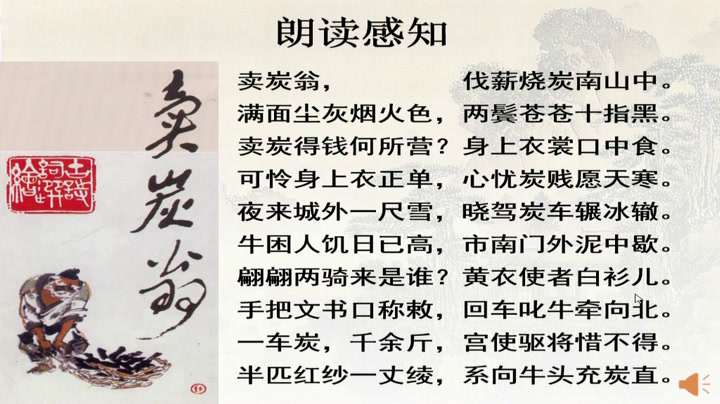 朗读感知
卖炭翁
卖炭翁，伐薪烧炭南山中。
满面尘灰烟火色，两鬓苍苍十指黑。
卖炭得钱何所营？身上衣裳口中食。
可怜身上衣正单，心忧炭贱愿天寒。
夜来城外一尺雪，晓驾炭车辗冰辙。
牛困人饥日已高，市南门外泥中歇。
翩翩两骑来是谁？黄衣使者白衫儿。
手把文书口称敕，回车叱牛牵向北。
一车炭，千余斤，宫使驱将惜不得。
半匹红纱一丈绫，系向牛头充炭直。